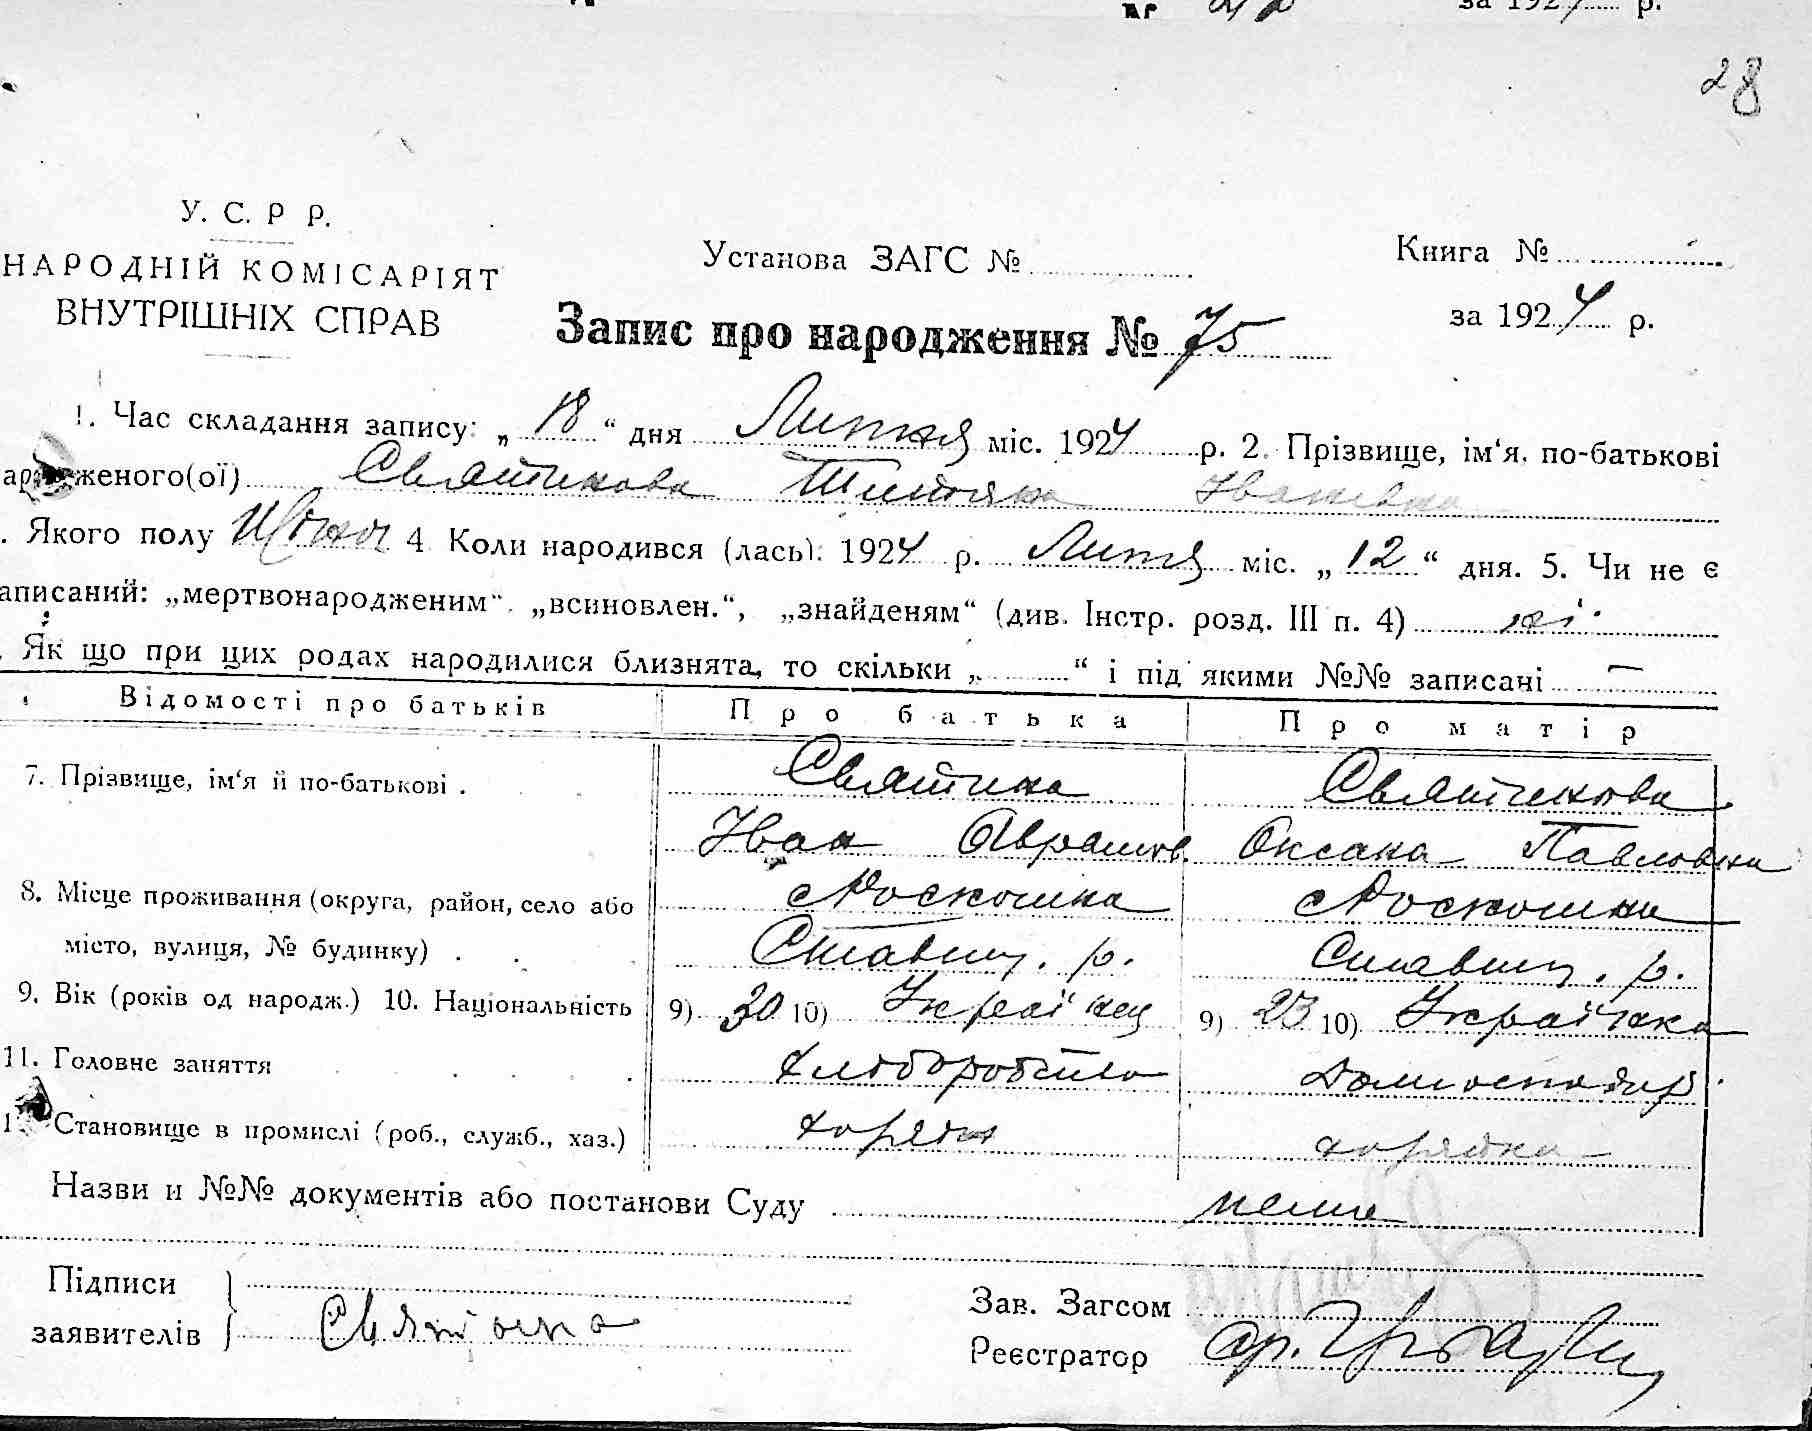 за 1924 р.
28
У. С. Р Р.
НАРОДНІЙ КОМІСАРІЯТ
ВНУТРІШНІХ СПРАВ
Установа ЗАГС №
Книга №
за 1924 р.
Запис про народження № 75
1. Час складання запису: „ 18 “ дня місс. 1924 р. 2. Прізвище, ім‘я, по-батькові
женого(ої) Святикова Титяна Івановна
. Якого полу Жіноч 4 Коли народився (лась). 1924 р. міс. „ 12 “ дня. 5. Чи не є
аписаний: „мертвонародженим“. „всиновлен.“, „знайденям“ (див. Інстр. розд. III п. 4) ні
. Як що при цих родах народилися близнята, то скільки „ “ і під якими №№ записані —
Відомості про батьків Про батька Про матір
7. Прізвище, ім‘я й по-батькові . Святика Святикова
Іван Аврамов. Оксана Павловна
8. Місце проживання (округа, район, село або Роскошна Роскошна
місто, вулиця, № будинку) . . Ставищ. р. Ставищ. р.
9. Вік (років од народж.) 10. Національність 9) 30 10) Українец 9) 23 10) Українка
11. Головне заняття . . . хлоборобство домгосподар.
1 Становище в промислі (роб., служб., хаз.)
Назви и №№ документів або постанови Суду нема
Підписи
заявителів
Зав. Загсом
Реєстратор